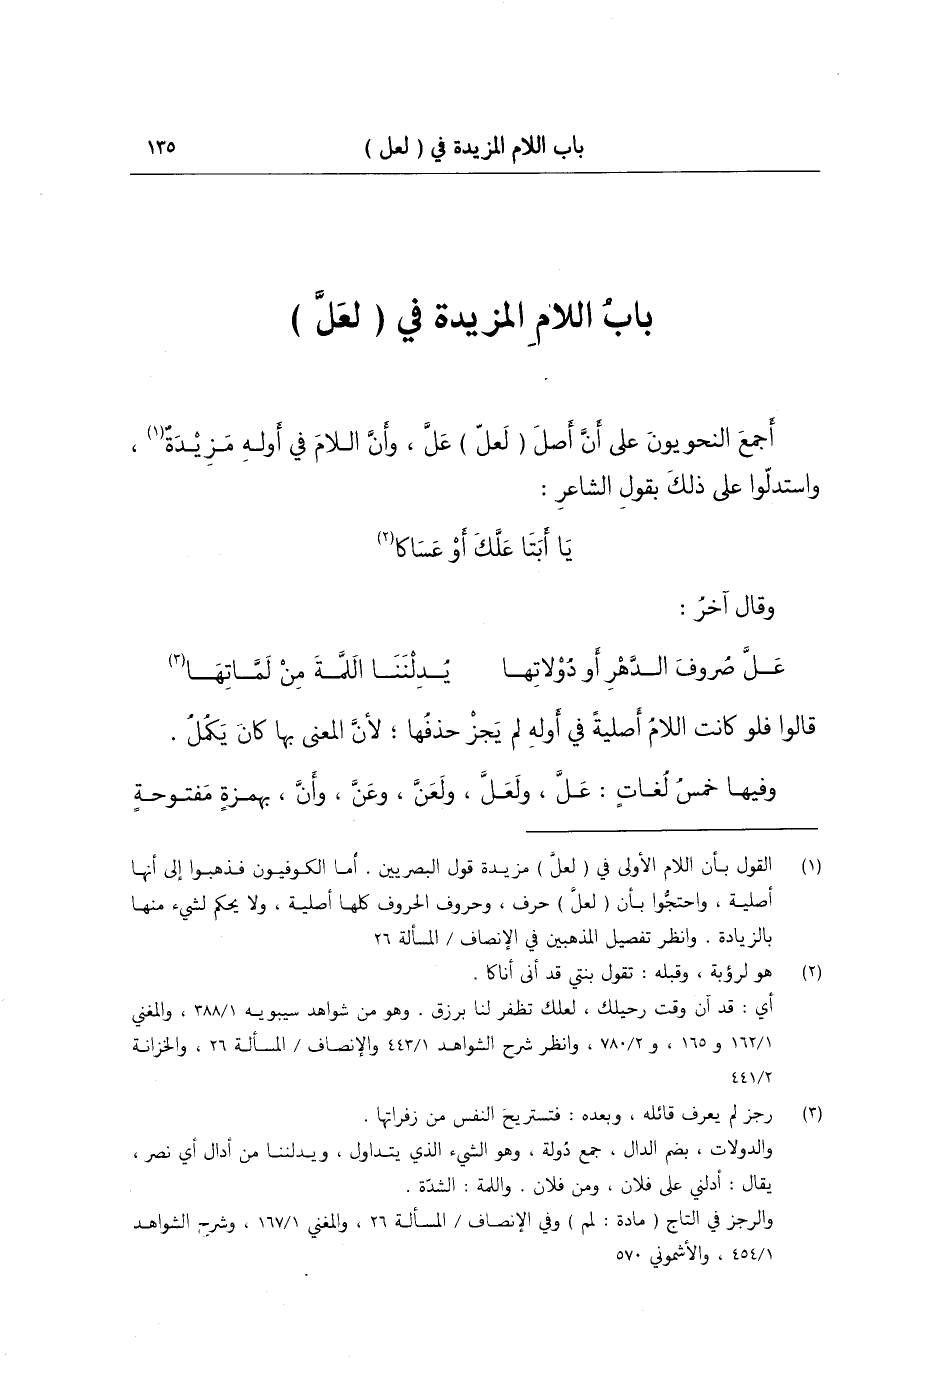 باب اللام المزيدة في ( لعل ) ١٣٥
بابُ اللامِ المزيدة في ( لعَلَّ )
أَجمعَ النحويونَ على أَنَّ أَصلَ ( لَعلّ ) عَلَّ ، وأَنَّ اللامَ في أَوله مَزِيْدَةٌ(١) ،
واستدلّوا على ذلكَ بقولِ الشاعرِ :
يَا أَبَتَا عَلَّكَ أَوْ عَسَاكا(٢)
وقال آخرُ :
عَلَّ صُروفَ الدَّهْرِ أَو دُوْلاتِها يُدِلْنَنَا اللَمَّةَ مِنْ لَمَّاتِهَا(٣)
قالوا فلو كانت اللامُ أصليةً في أَولهِ لم يَجزْ حذفُها ؛ لأنَّ المعنى بها كانَ يَكمُلُ .
وفيها خمسُ لُغاتٍ : عَلَّ ، ولَعَلَّ ، ولَعَنَّ ، وعَنَّ ، وأَنَّ ، بهمزةٍ مَفتوحةٍ
(١) القول بأن اللام الأولى في ( لعلَّ ) مزيدة قول البصريين . أما الكوفيون فذهبوا إلى أنها
أصلية ، واحتجُّوا بأن ( لعلَّ ) حرف ، وحروف الحروف كلها أصلية ، ولا يحكم لشيء منها
بالزيادة . وانظر تفصيل المذهبين في الإنصاف / المسألة ٢٦
(٢) هو لرؤبة ، وقبله : تقول بنتي قد أنى أناكا .
أي : قد آن وقت رحيلك ، لعلك تظفر لنا برزق . وهو من شواهد سيبويه ٣٨٨/١ ، والمغني
١٦٢/١ و ١٦٥ ، و ٧٨٠/٢ ، وانظر شرح الشواهد ٤٤٣/١ والإنصاف / المسألة ٢٦ ، والخزانة
٤٤١/٢
(٣) رجز لم يعرف قائله ، وبعده : فتستريحَ النفس من زفراتها .
والدولات ، بضم الدال ، جمع دُولة ، وهو الشيء الذي يتداول ، ويدلننا من أدال أي نصر ،
يقال : أدلني على فلان ، ومن فلان . واللمة : الشدّة .
والرجز في التاج ( مادة : لم ) وفي الإنصاف / المسألة ٢٦ ، والمغني ١٦٧/١ ، وشرح الشواهد
٤٥٤/١ ، والأشموني ٥٧٠